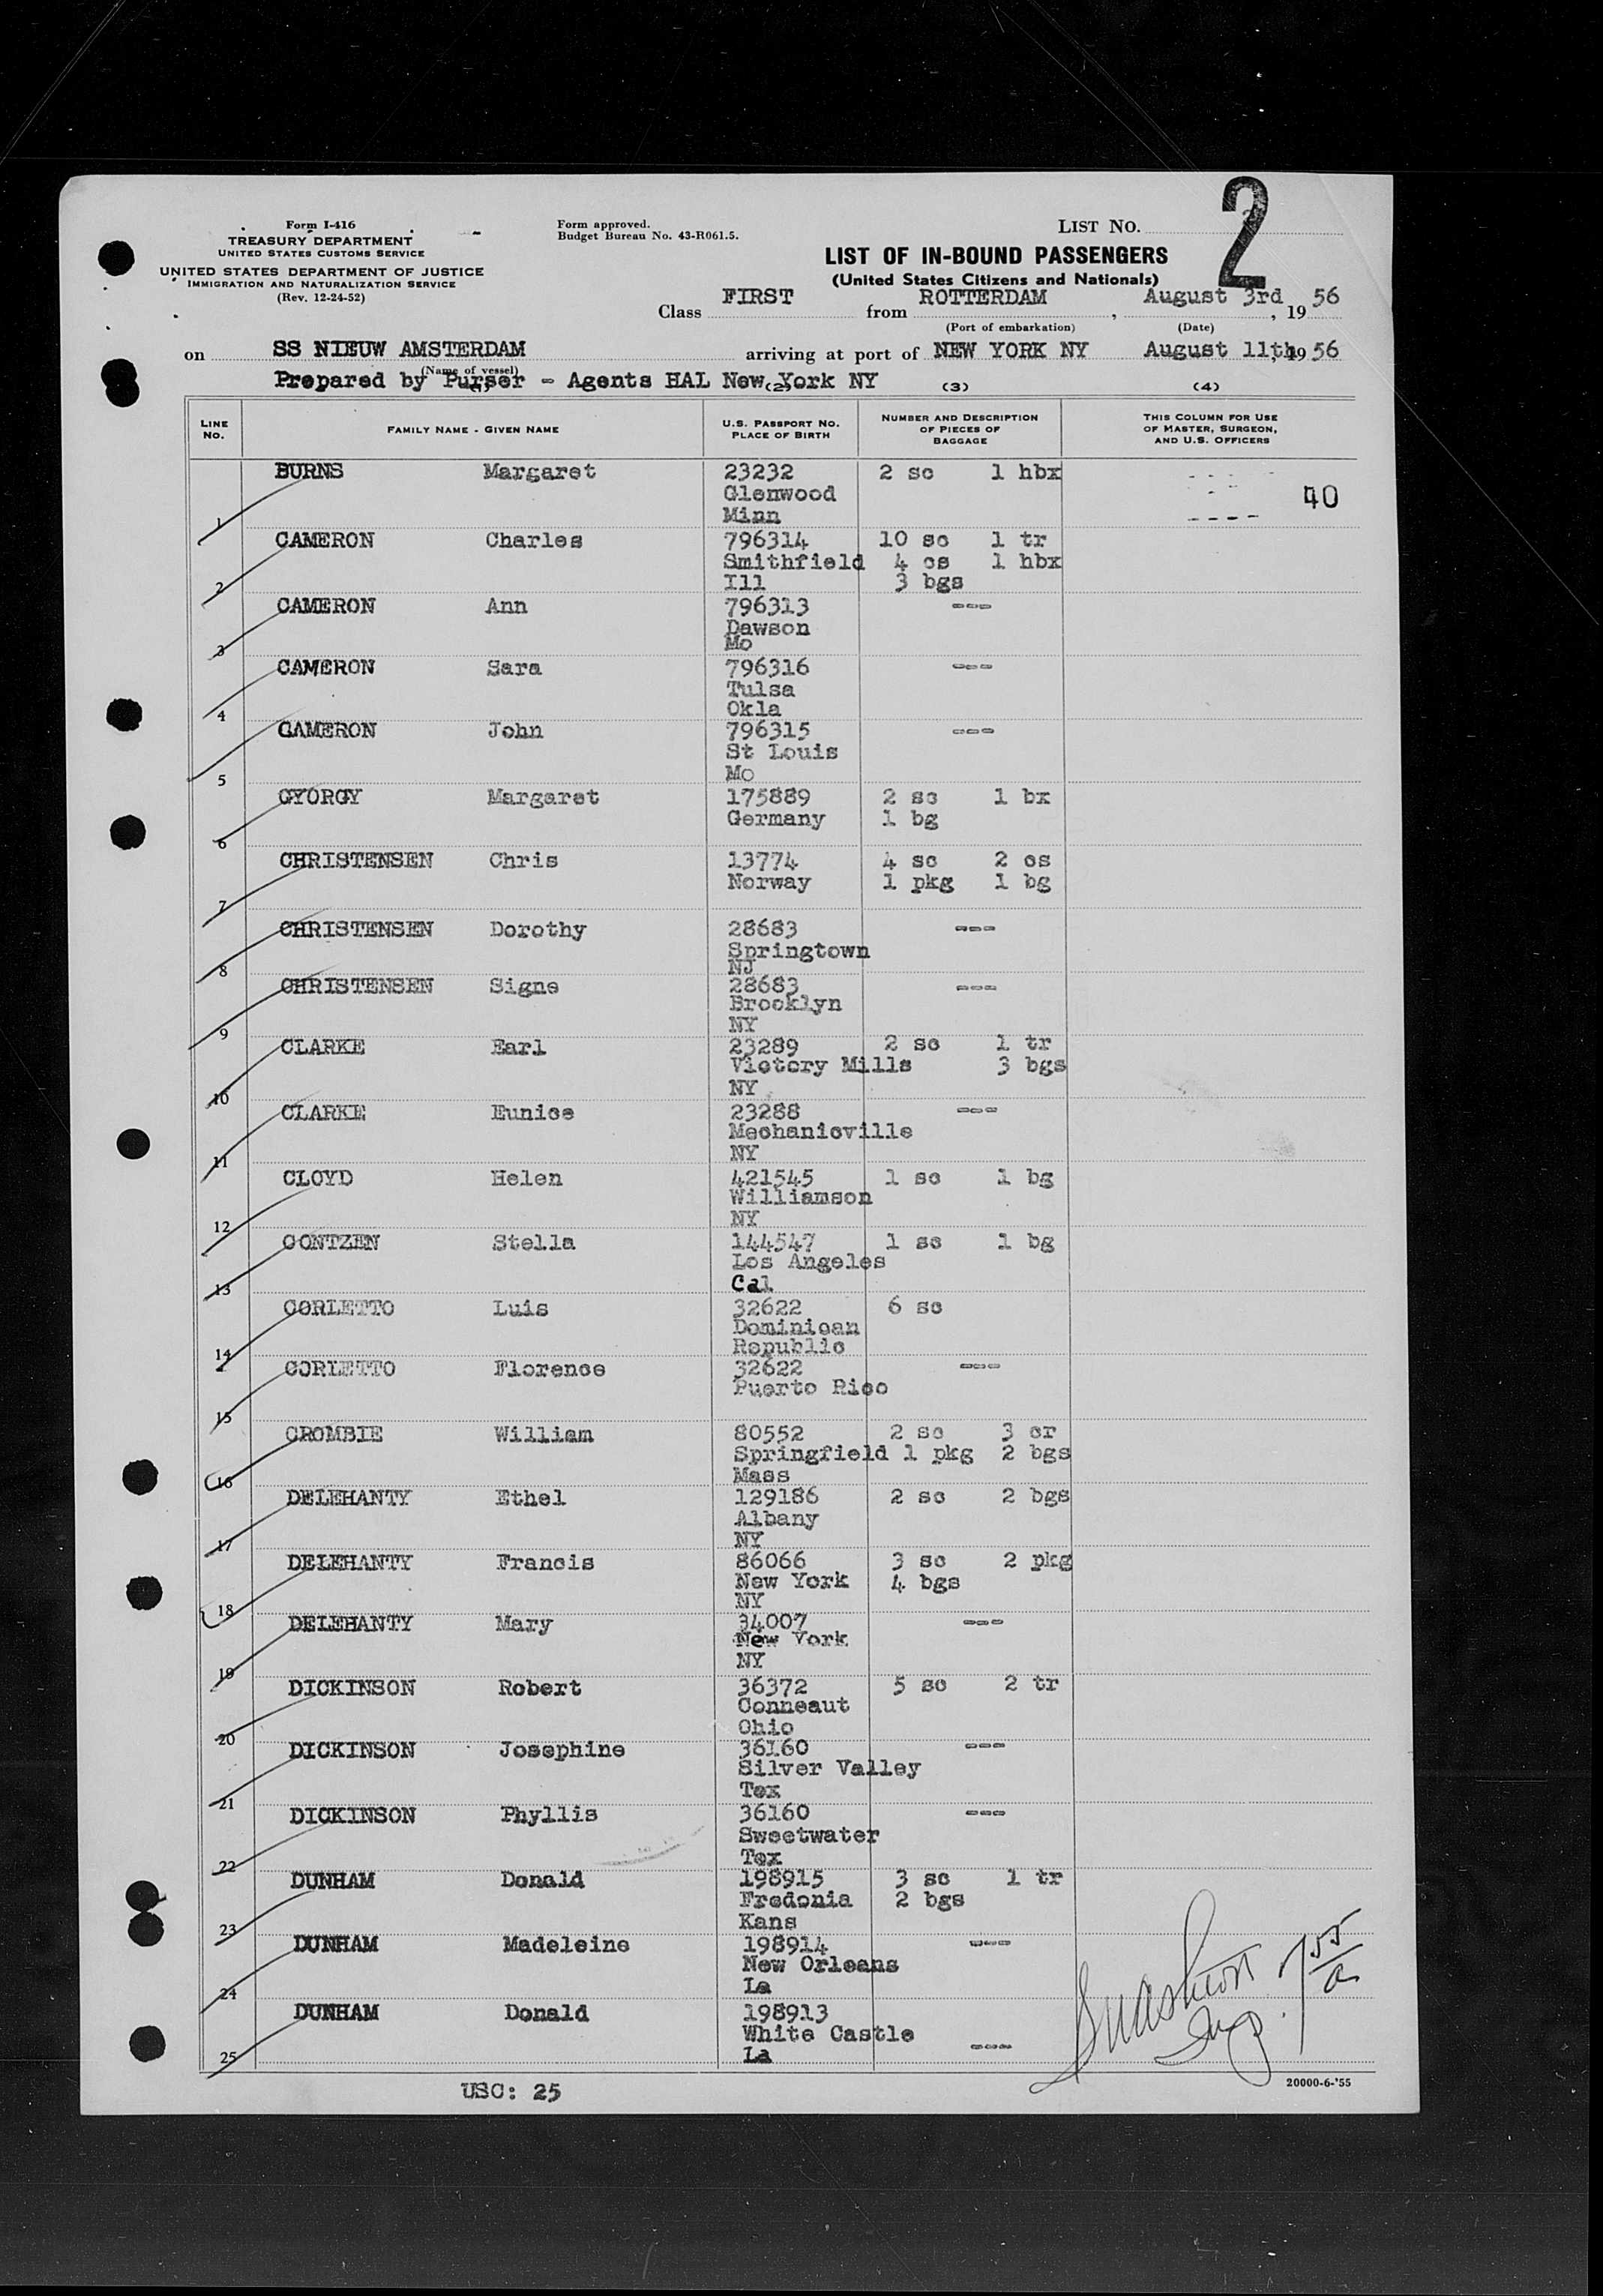 Form I-416
TREASURY DEPARTMENT
UNITED STATES CUSTOMS SERVICE
UNITED STATES DEPARTMENT OF JUSTICE
IMMIGRATION AND NATURALIZATION SERVICE
(Rev. 12-24-52)
Form approved.
Budget Bureau No. 43-R061.5.
LIST NO. 2
LIST OF IN-BOUND PASSENGERS
(United States Citizens and Nationals)
Class FIRST from ROTTERDAM, August 3rd, 19 56
(Port of embarkation) (Date)
on SS NIEUW AMSTERDAM arriving at port of NEW YORK NY August 11th, 19 56
(Name of vessel)
Prepared by Purser - Agents HAL New York NY
(1) (2) (3) (4)
LINE NO. FAMILY NAME - GIVEN NAME U.S. PASSPORT NO. PLACE OF BIRTH NUMBER AND DESCRIPTION OF PIECES OF BAGGAGE THIS COLUMN FOR USE OF MASTER, SURGEON, AND U.S. OFFICERS
BURNS Margaret 23232 2 sc 1 hbx
Glenwood 40
1 Minn
CAMERON Charles 796314 10 sc 1 tr
Smithfield 4 cs 1 hbx
2 Ill 3 bgs
CAMERON Ann 796313 ---
Dawson
3 Mo
CAMERON Sara 796316 ---
Tulsa
4 Okla
CAMERON John 796315 ---
St Louis
5 Mo
GYORGY Margaret 175889 2 sc 1 bx
Germany 1 bg
6
CHRISTENSEN Chris 13774 4 sc 2 cs
Norway 1 pkg 1 bg
7
CHRISTENSEN Dorothy 28683 ---
Springtown
8 NJ
CHRISTENSEN Signe 28683 ---
Brooklyn
9 NY
CLARKE Earl 23289 2 sc 1 tr
Victory Mills 3 bgs
10 NY
CLARKE Eunice 23288 ---
Mechanicville
11 NY
CLOYD Helen 421545 1 sc 1 bg
Williamson
12 NY
CONTZEN Stella 144547 1 sc 1 bg
Los Angeles
13 Cal
CORLETTO Luis 32622 6 sc
Dominican
14 Republic
CORLETTO Florence 32622 ---
Puerto Rico
15
CROMBIE William 80552 2 sc 3 cr
Springfield 1 pkg 2 bgs
16 Mass
DELEHANTY Ethel 129186 2 sc 2 bgs
Albany
17 NY
DELEHANTY Francis 86066 3 sc 2 pkg
New York 4 bgs
18 NY
DELEHANTY Mary 34007 ---
New York
19 NY
DICKINSON Robert 36372 5 sc 2 tr
Conneaut
20 Ohio
DICKINSON Josephine 36160 ---
Silver Valley
21 Tex
DICKINSON Phyllis 36160 ---
Sweetwater
22 Tex
DUNHAM Donald 198915 3 sc 1 tr
Fredonia 2 bgs
23 Kans
DUNHAM Madeleine 198914 ---
New Orleans
24 La
DUNHAM Donald 198913
White Castle
25 La ---
USC: 25
20000-6-'55